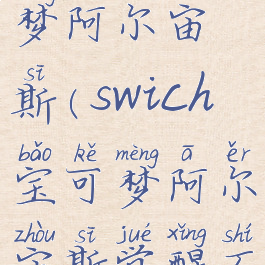 梦阿尔宙
sī
斯(swich
bǎo kě mèng ā ěr
宝可梦阿尔
zhòu sī jué xǐng shí
宙斯觉醒石